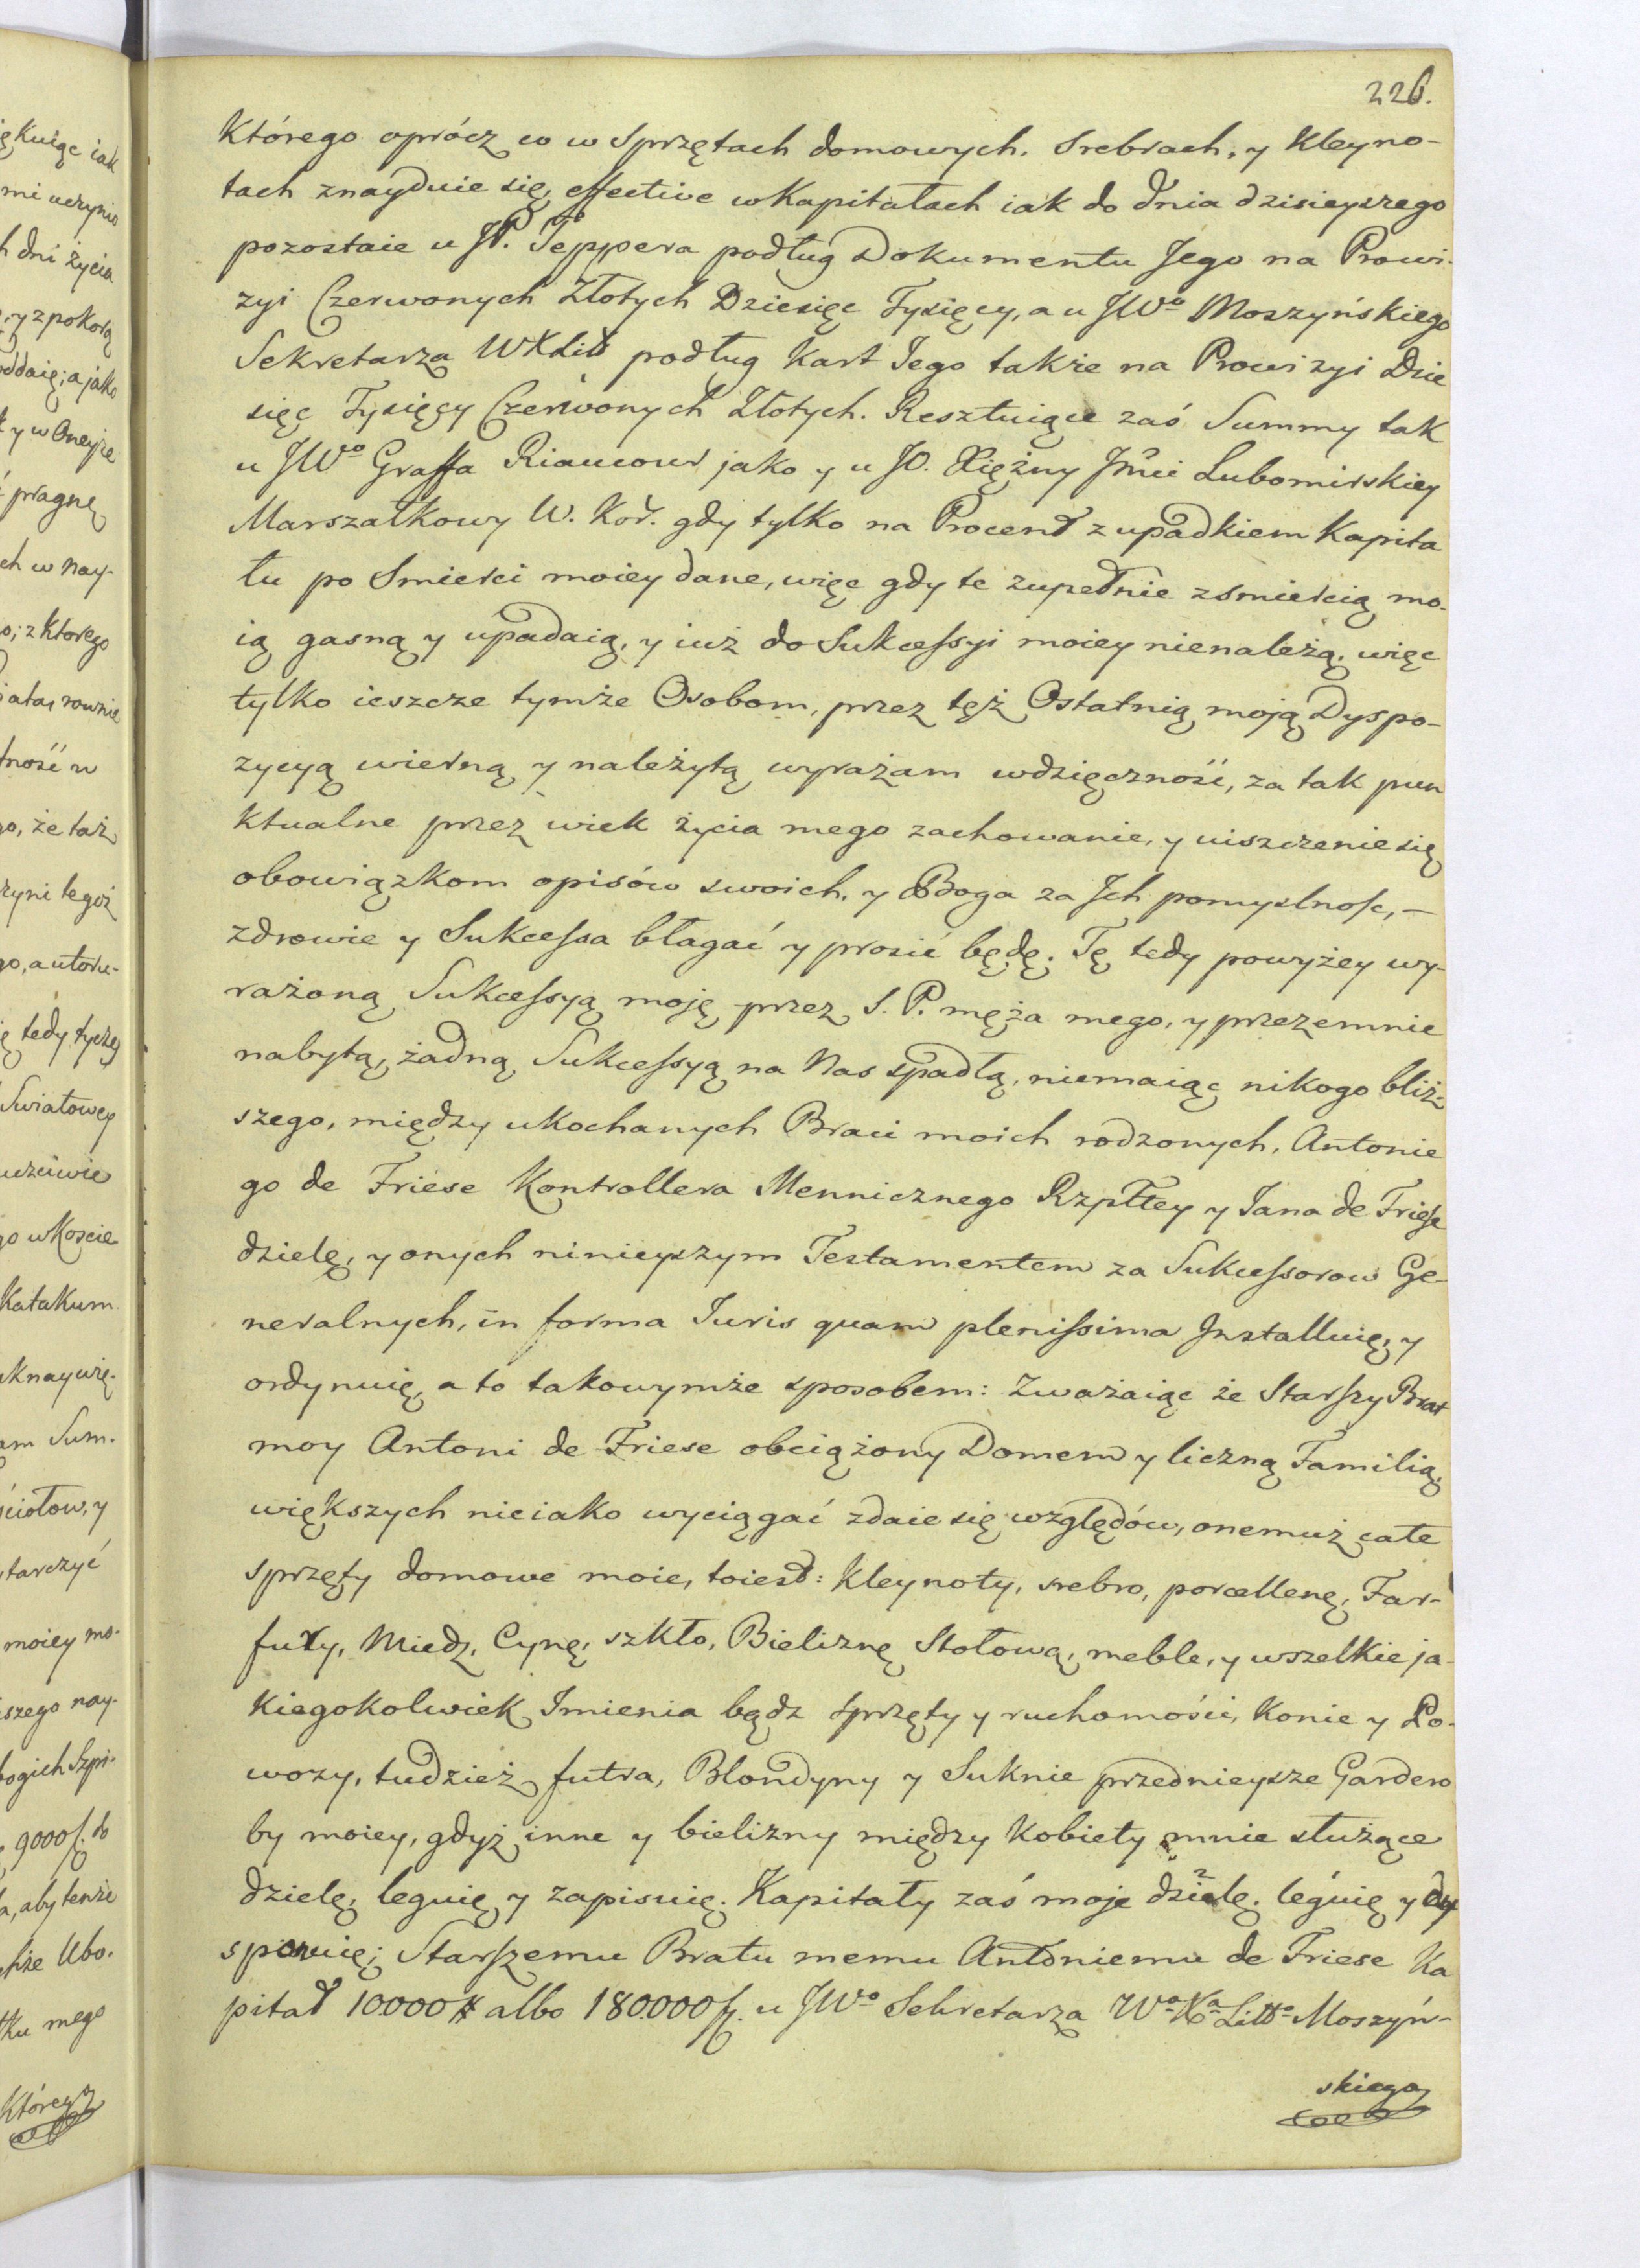 226.
Którego oprócz co w Sprzętach domowych. Srebrach, y Kleyno-
tach znayduie się, effective w Kapitałach iak do dnia dzisieyszego
pozostaie u JP. Teppera podług Dokumentu Jego na Prowi-
zyi Czerwonych Złotych Dziesięc Tysięcy, a u JWo Moszyńskiego
Sekretarza WXLitt podług Kart Jego także na Prowizyi Dzie
sięc Tysięcy Czerwonych Złotych. Resztuiące zaś Summy tak
u JWo Graffa Riaucour jako y u JO. Xiężny Jmci Lubomirskiey
Marszałkowy W. Kor. gdy tylko na Procent z upadkiem Kapita
łu po Smierci moiey dane, więc gdy te zupełnie z smiercią mo-
ią gasną y upadaią, y iuż do Sukcessyi moiey nienależą, więc
tylko ieszcze tymże Osobom, przez tęż Ostatnią moją Dyspo-
zycyą wierną y należytą wyrażam wdzięczność, za tak pun
ktualne przez wiek życia mego zachowanie, y uiszczenie się
obowiązkom opisów swoich, y Boga za Jch pomyslnosc, –
zdrowie y Sukcessa błagać y prosić będę. Tę tedy powyżey wy-
rażoną Sukcessyą moję przez S. P. męża mego, y przezemnie
nabytą, żadną Sukcessyą na Nas spadłą, niemaiąc nikogo bliż-
szego, między ukochanych Braci moich rodzonych, Antonie
go de Friese Kontrollera Mennicznego Rzpltey y Jana de Friese
dzielę, y onych ninieyszym Testamentem za Sukcessorow Ge-
neralnych, in forma Juris quam plenissima Jnstalluię, y
ordynuię, a to takowymże sposobem: Zważaiąc że Starszy Brat
moy Antoni de Friese obciążony Domem y liczną Familią,
większych nieiako wyciągać zdaie się względów, onemuż całe
sprzęty domowe moie, toiest: Kleynoty, srebro, porcellenę, Far-
fury, Miedz, Cynę, szkło, Bieliznę Stołową, meble, y wszelkie ja-
kiegokolwiek Jmienia bądz sprzęty y ruchomości, Konie y Po-
wozy, tudzież futra, Blondyny y Suknie przednieysze Gardero
by moiey, gdyż inne y bielizny między Kobiety mnie służące
dzielę, leguię y zapisuię. Kapitały zaś moje dzielę, leguię y dy
sponuię; Starszemu Bratu memu Antoniemu de Friese Ka
pitał 10000 # albo 180000 f. u JWo Sekretarza Wo Xa Litto Moszyń-
skiego